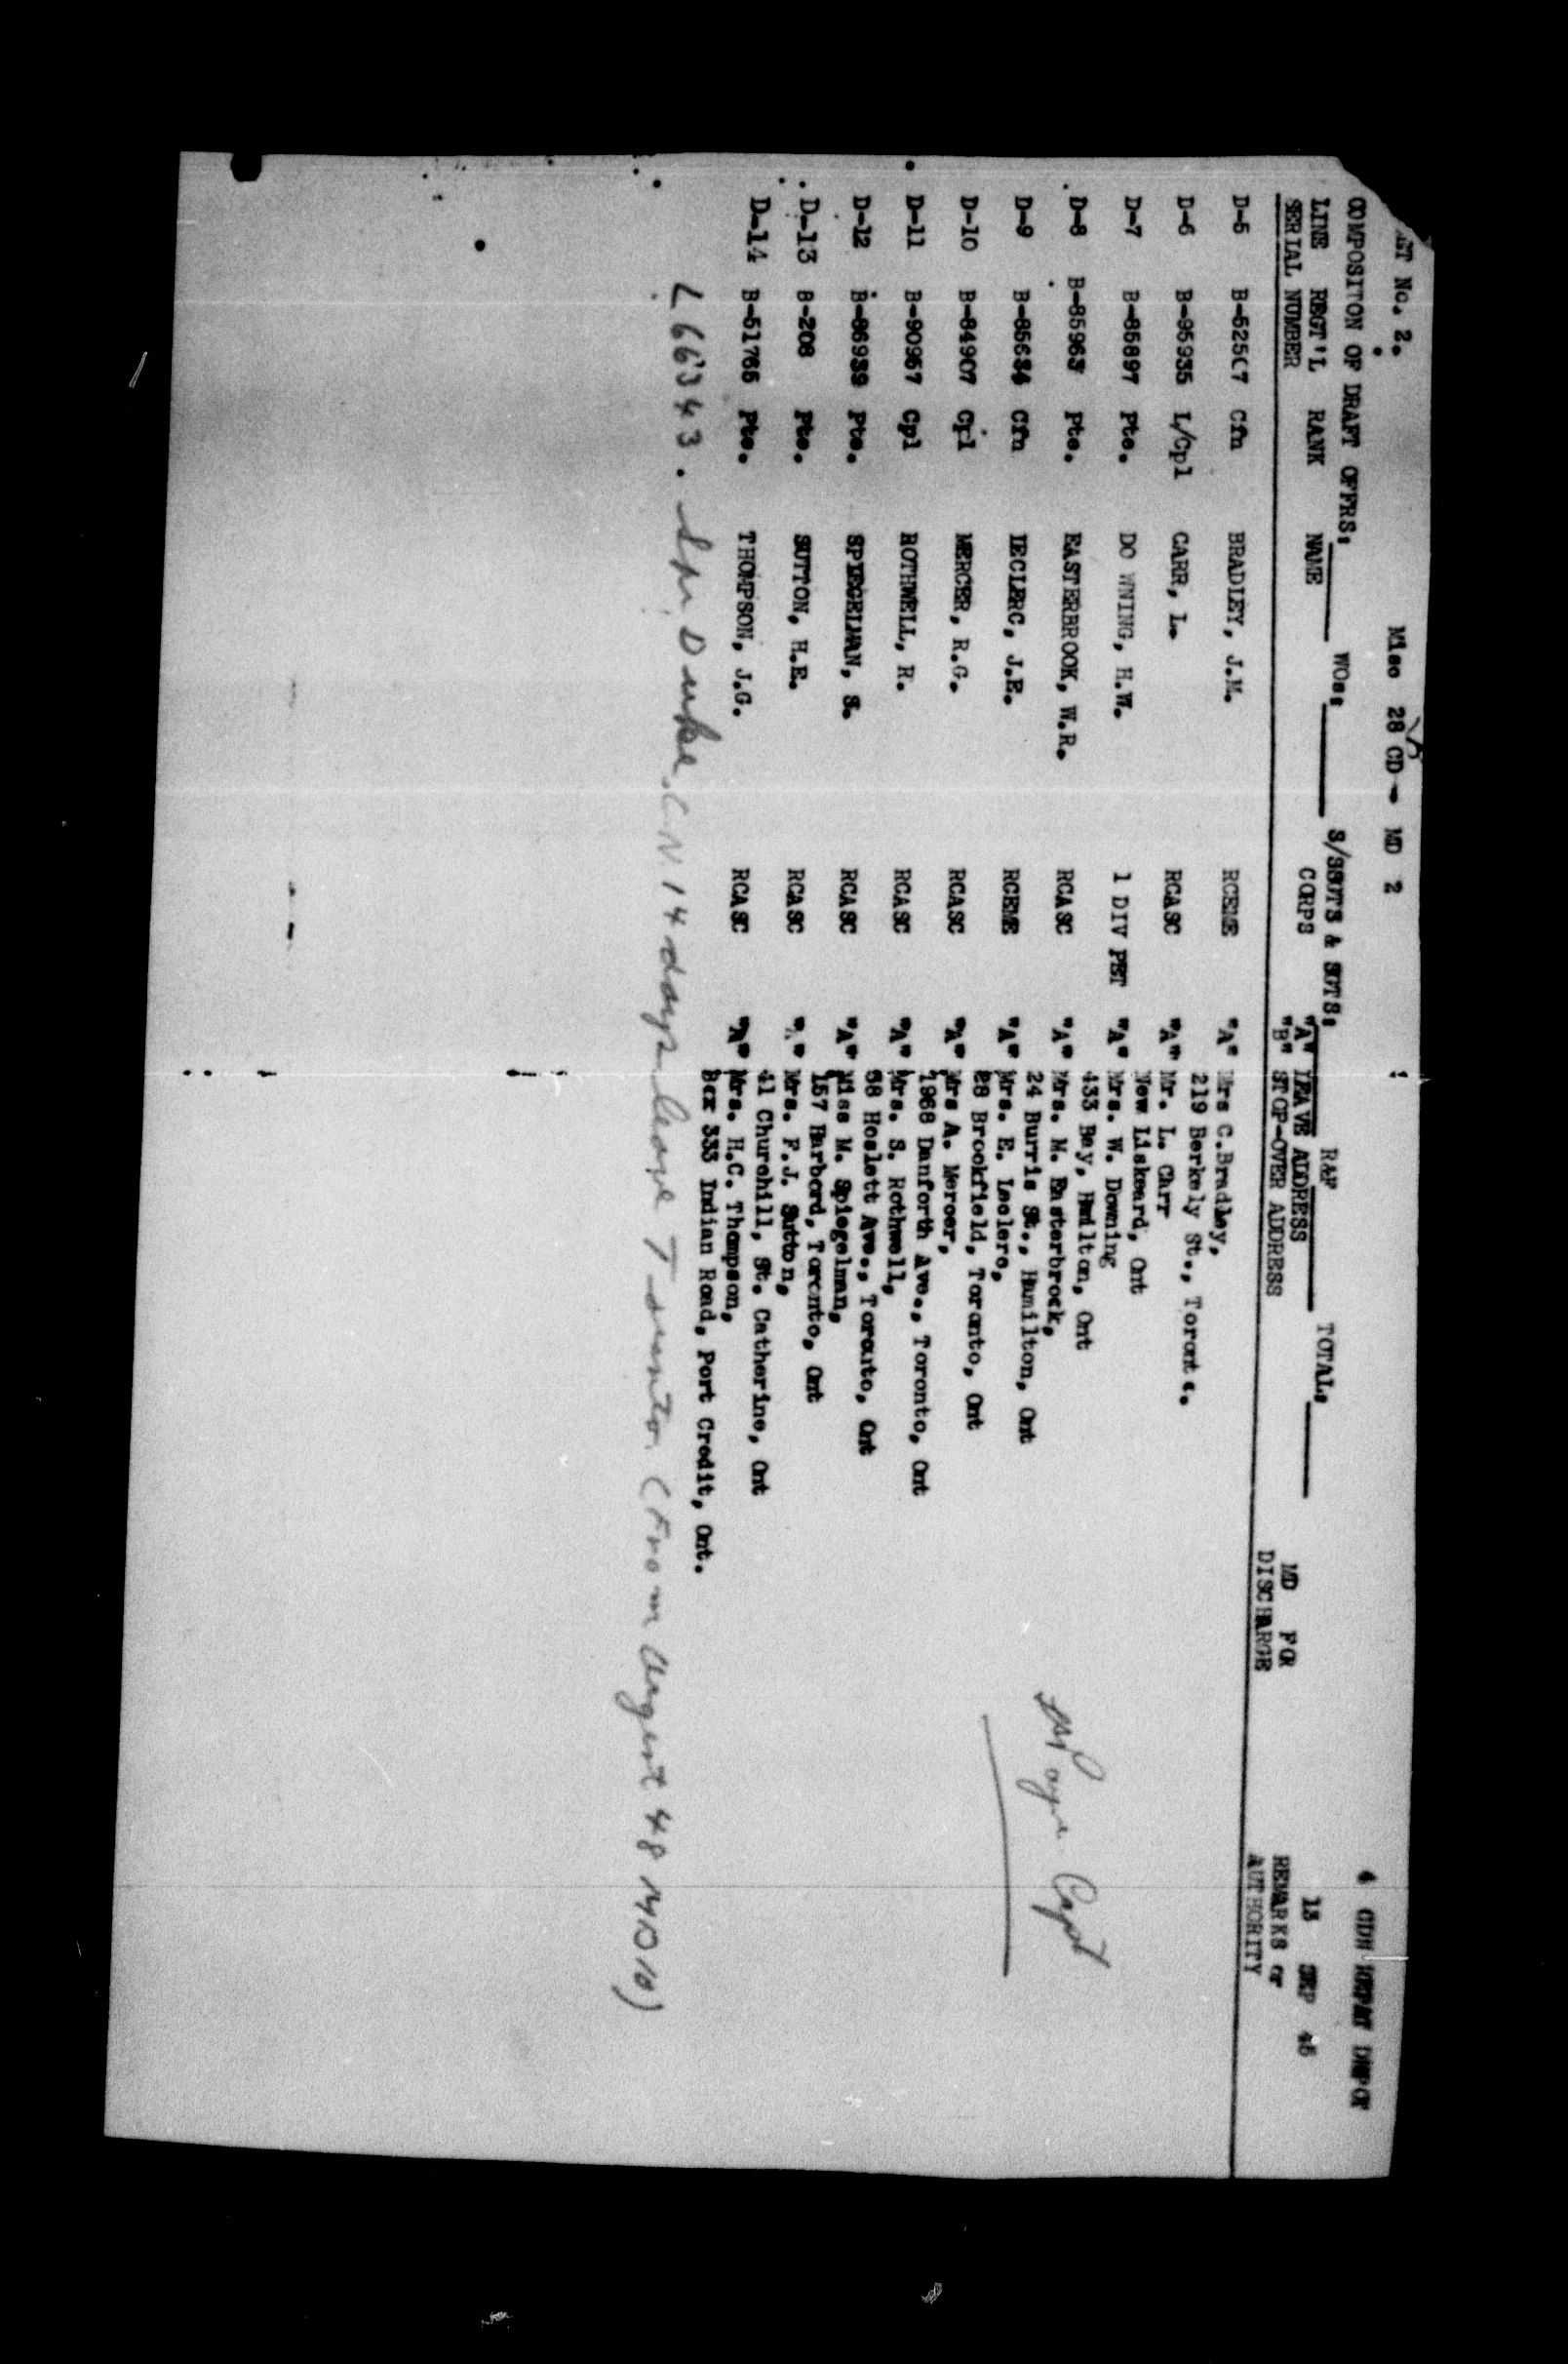 No. 2. Misc 28 CD - MD 2 4 CDN REPAT DEPOT
COMPOSITON OF DRAFT OFFRS: WOs: S/SGTS & SGTS: R&F TOTAL: 13 SEP 45
LINE REGT'L RANK NAME CORPS "A" LEAVE ADDRESS MD FOR REMARKS or
SERIAL NUMBER "B" STOP-OVER ADDRESS DISCHARGE AUTHORITY
D-5 B-52507 Cfn BRADLEY, J.M. RCEME "A" Mrs C.Bradley,
219 Berkely St., Toronto.
D-6 B-95935 L/Cpl CARR, L. RCASC "A" Mr. L. Carr
New Liskeard, Ont
D-7 B-85897 Pte. DO WNING, H.W. 1 DIV PET "A" Mrs. W. Downing
433 Bay, Hamilton, Ont
D-8 B-85963 Pte. EASTERBROOK, W.R. RCASC "A" Mrs. M. Easterbrook,
24 Burris St., Hamilton, Ont
D-9 B-85634 Cfn LECLERC, J.E. RCEME "A" Mrs. E. Leclerc,
28 Brookfield, Toronto, Ont
D-10 B-84907 Cpl MERCER, R.G. RCASC "A" Mrs A. Mercer,
1968 Danforth Ave., Toronto, Ont
D-11 B-90957 Cpl ROTHWELL, R. RCASC "A" Mrs. S. Rothwell,
58 Hoslett Ave., Toronto, Ont
D-12 B-86939 Pte. SPIEGELMAN, S. RCASC "A" Miss M. Spiegelman,
157 Harbord, Toronto, Ont
D-13 B-208 Pte. SUTTON, H.E. RCASC "A" Mrs. F.J. Sutton,
41 Churchill, St. Catherine, Ont
D-14 B-51765 Pte. THOMPSON, J.G. RCASC "A" Mrs. H.C. Thompson,
Box 333 Indian Road, Port Credit, Ont.
L 66343. Spr Duke. C.N 14 days leave Toronto (From August 48 MD 10)
Capt